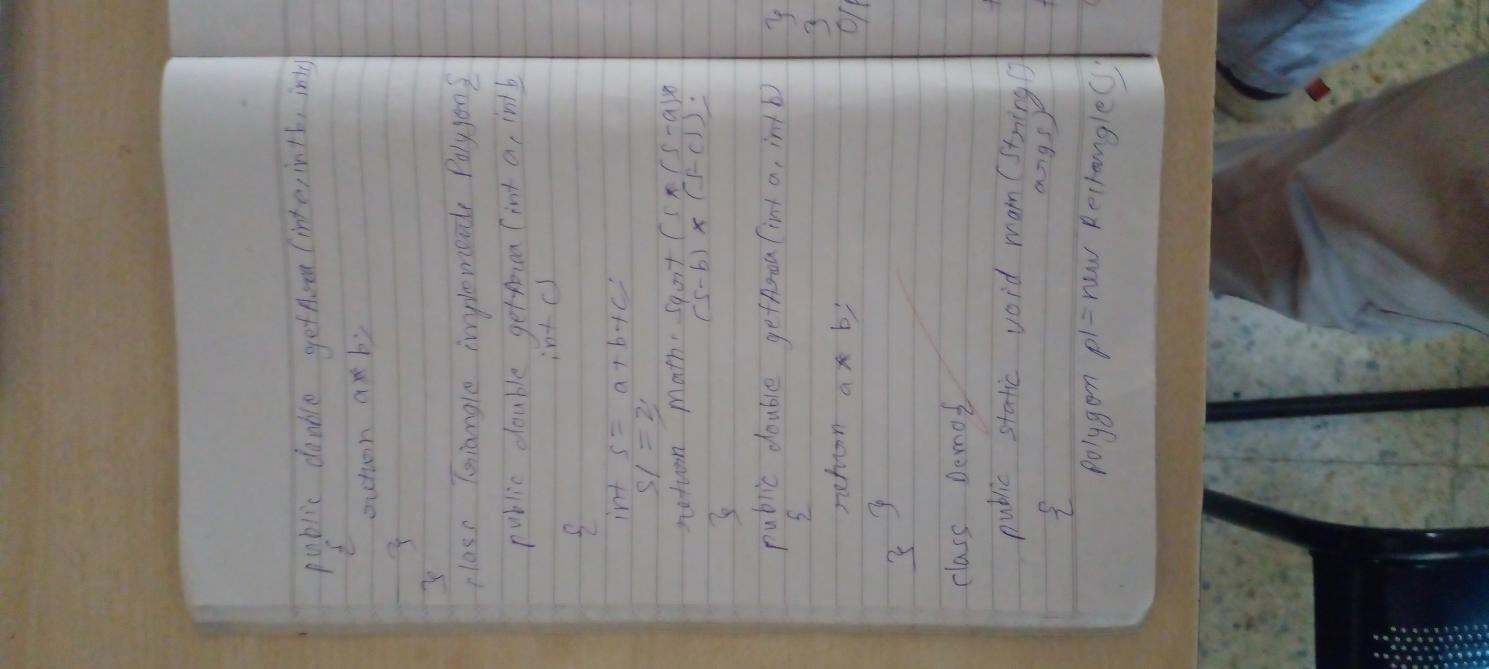 public double getArea (int a, int b, int c)
{
return a * b;
}
}
class Triangle implements Polygon{
public double getArea (int a, int b
int c)
{
int s = a + b + c;
s/ = 2;
return Math. sqrt ( s * (s - a) *
(s - b) * (s - c));
}
public double getArea (int a, int b)
{
return a * b;
}
}
class Demo{
public static void main (String[]
args)
{
Polygon p1 = new Rectangle();
}
}
O/P